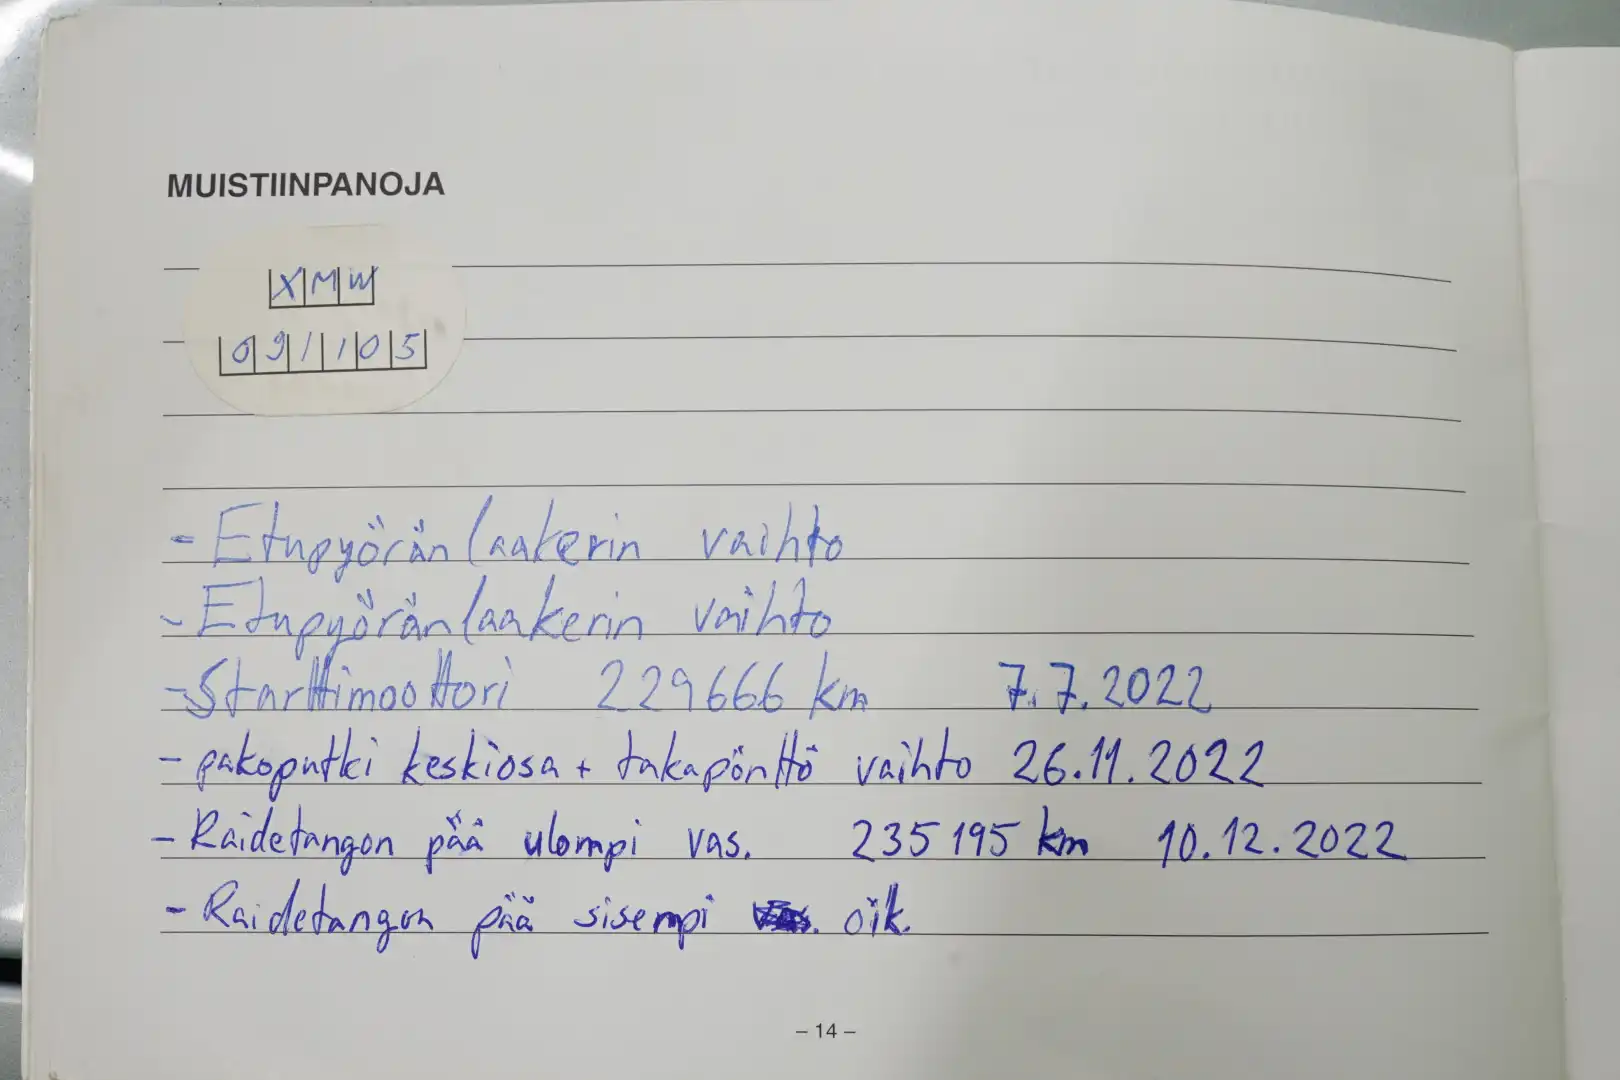 MUISTIINPANOJA
XMW
091105
- Etupyöränlaakerin vaihto
- Etupyöränlaakerin vaihto
- Starttimoottori 229666 km 7.7.2022
- pakoputki keskiosa + takapönttö vaihto 26.11.2022
- Raidetangon pää ulompi vas. 235195 km 10.12.2022
- Raidetangon pää sisempi oik.
- 14 -